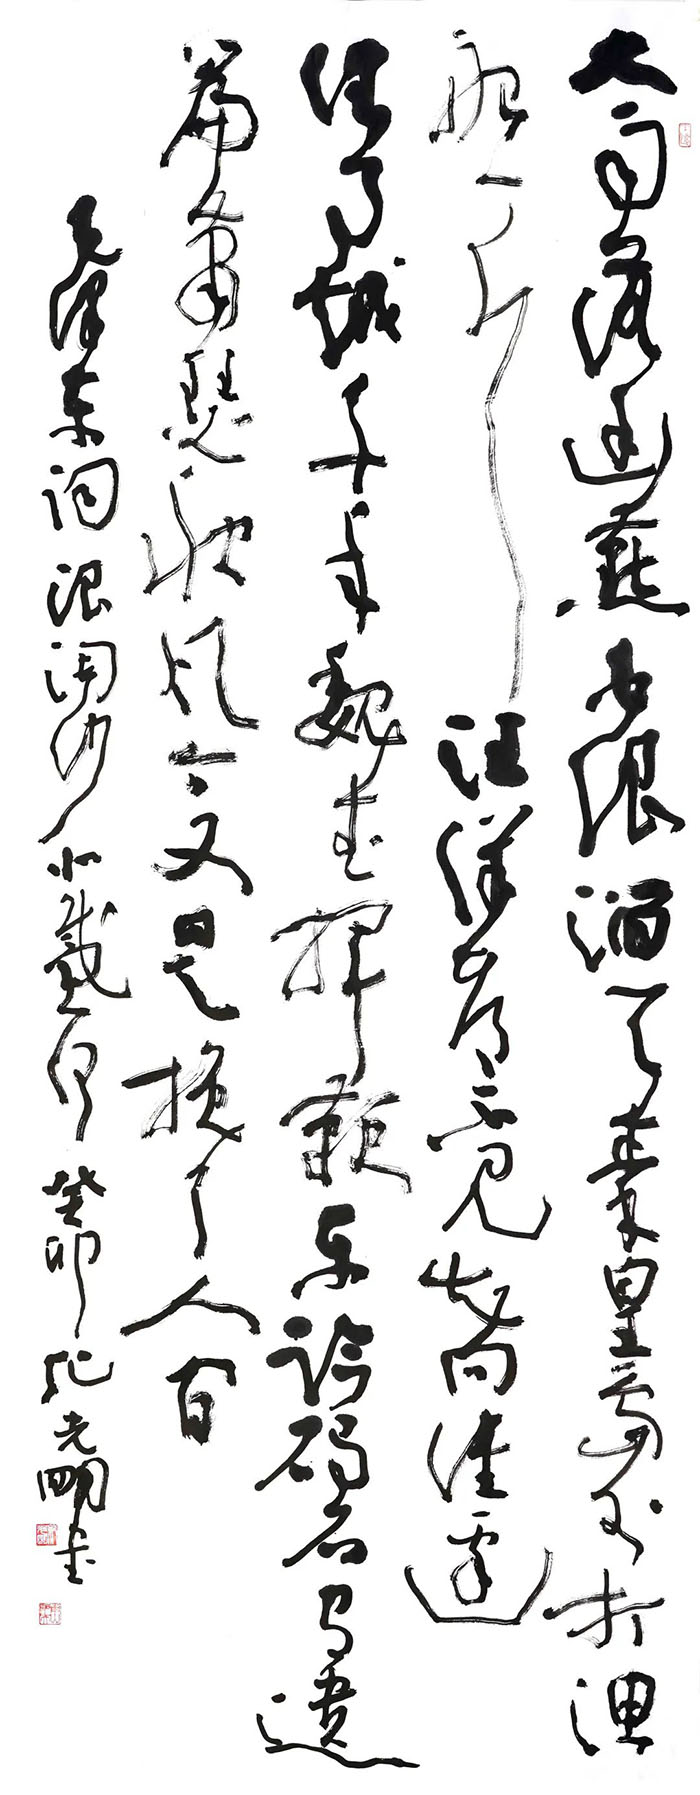 大雨落幽燕白浪滔天秦皇岛外打渔
船一片汪洋都不见知向谁边
往事越千年魏武挥鞭东临碣石有遗
篇萧瑟秋风今又是换了人间
毛泽东词浪淘沙北戴河癸卯书